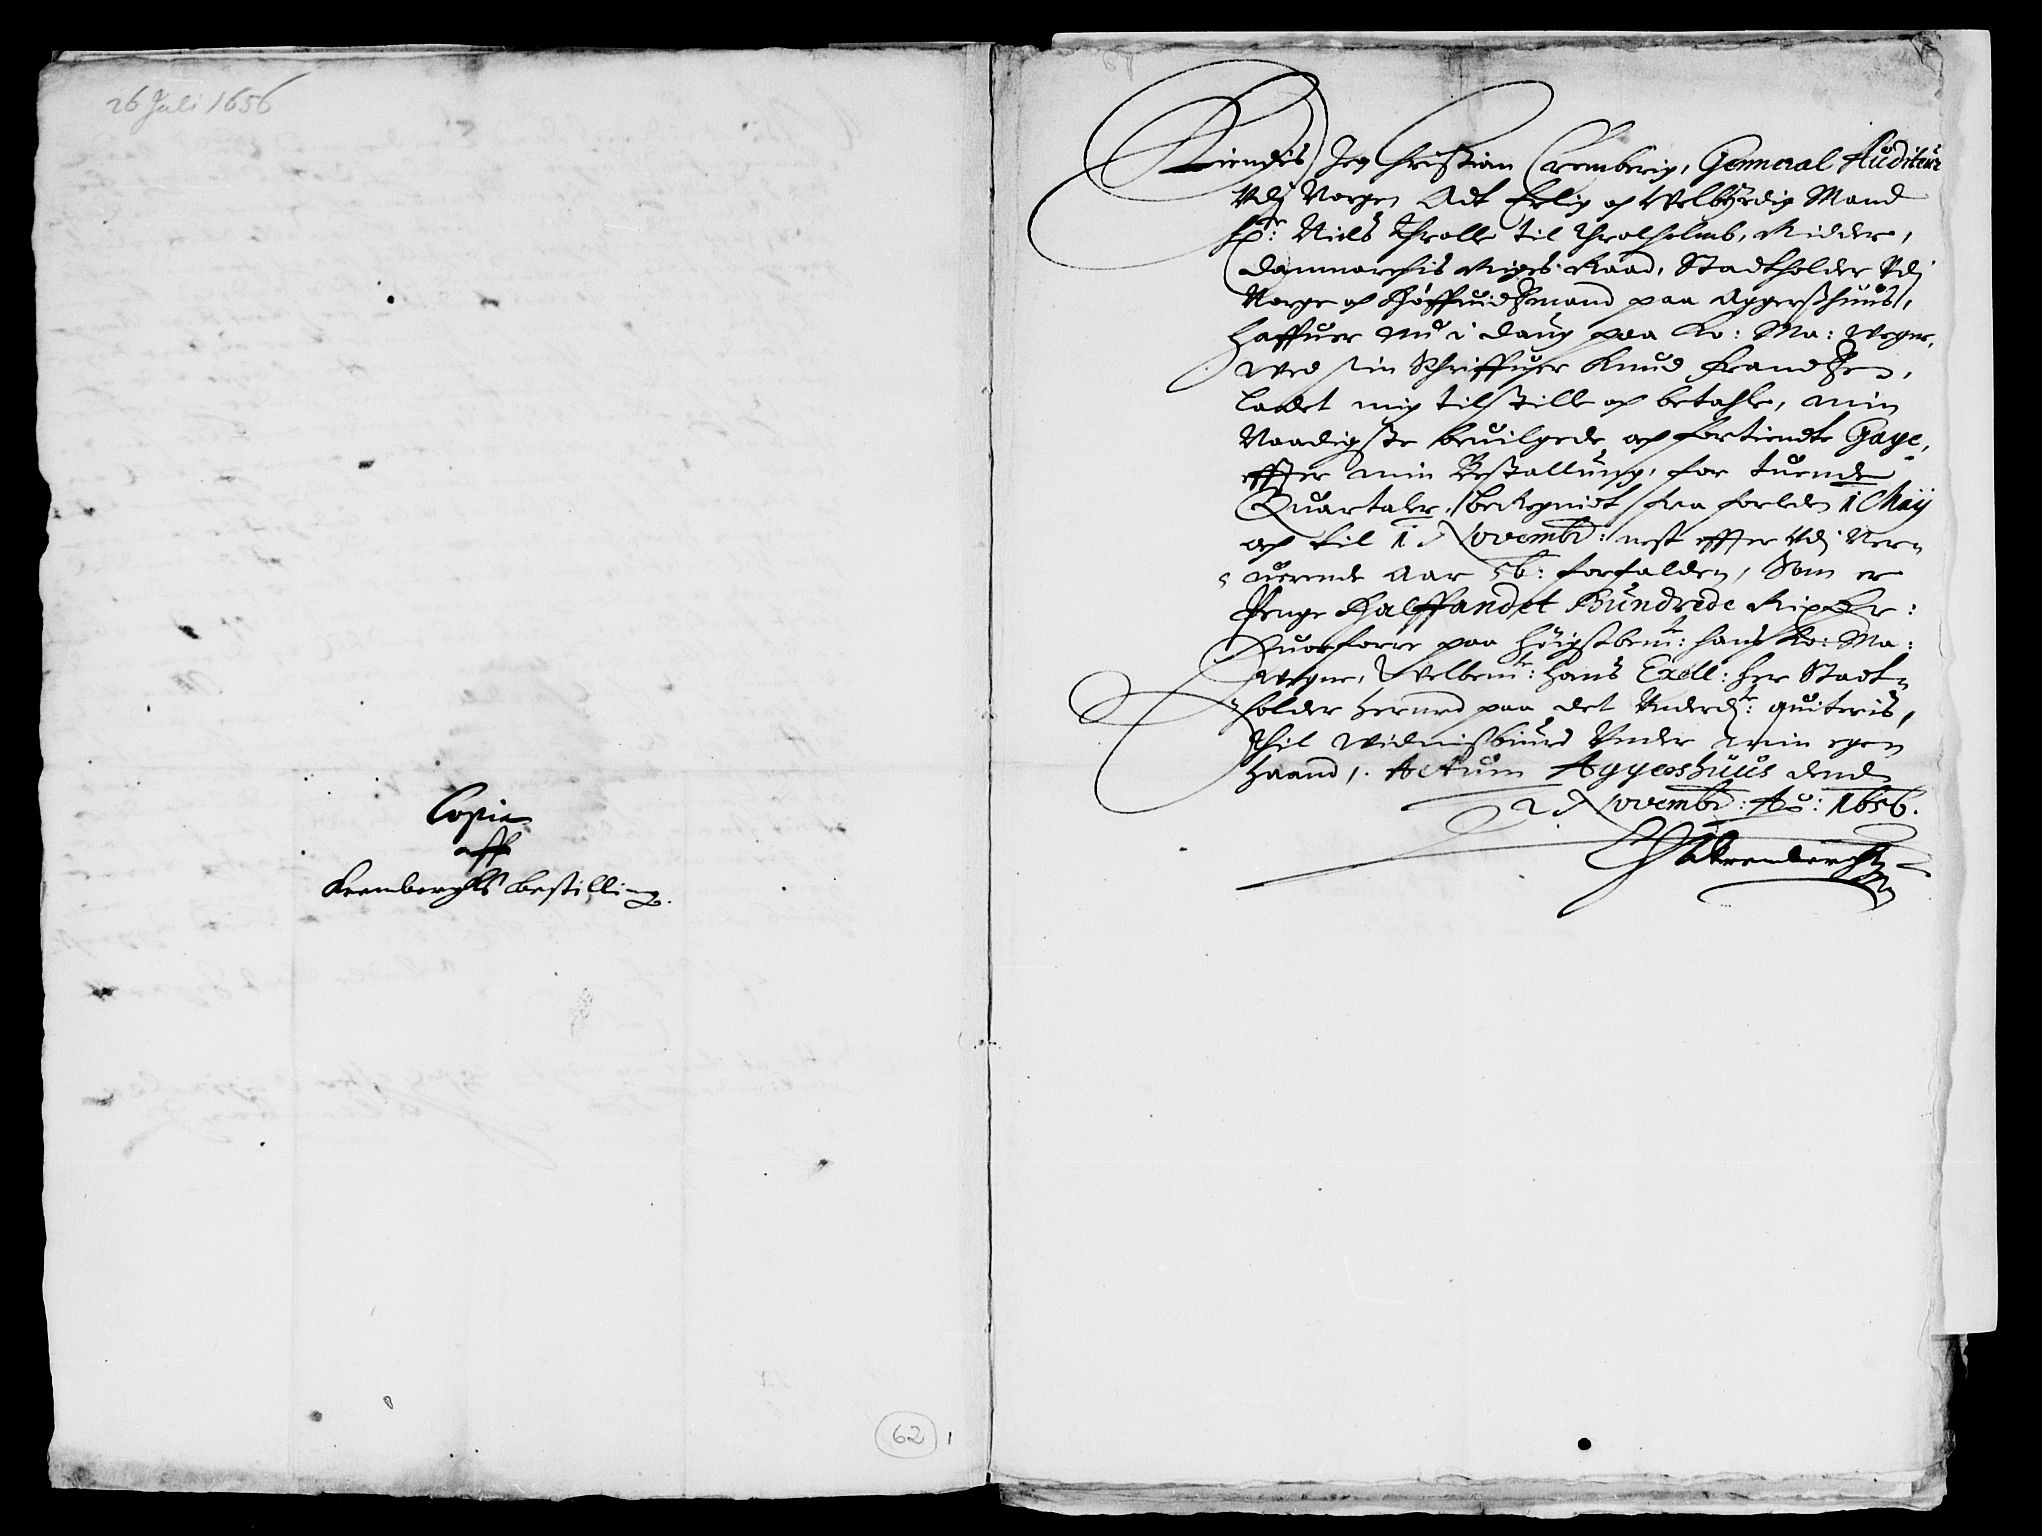 26 Juli 1656
Copie
aff
Krembergks bestilling.
62
1
Kiendis Jeg Christian Cremberig, General Auditeur
Vdj Norgen Adt Erlig och Welbÿrdig Mand
Hr: Niels Throlle til Throlholmb, Ridder,
Danmarchis Riges Raad, Stadtholder Vdj
Norge och Höffuidtzmand paa Aggerßhuus,
haffuer nu i daug paa Ko: Ma: wegne,
wed sin Schriffuer Knud Frandtzen,
ladet mig tilstille och betahle, min
Naadigste beuilgede och fortiendte Gage,
effter min Bestallung, for tuende
Quartaler, beregnidt fra forleden 1 Maÿ
och til 1 Novembr: nest effter Vdj Ner-
uerende Aar 56: forfalden, Som er
Penge Halffandet Hundrede Rixdlr:
Huorforre paa höigstbemt: hans Ko: Ma:
wegne, Welbemte: hans Excell: her Stadt-
holder hermed paa det Vnderdte: quiteris,
Thil Widnißbiurd Vnder min egen
Haand,. Actum Aggershuus dend
2 Novembr: Ao: 1656.
CKrembergk